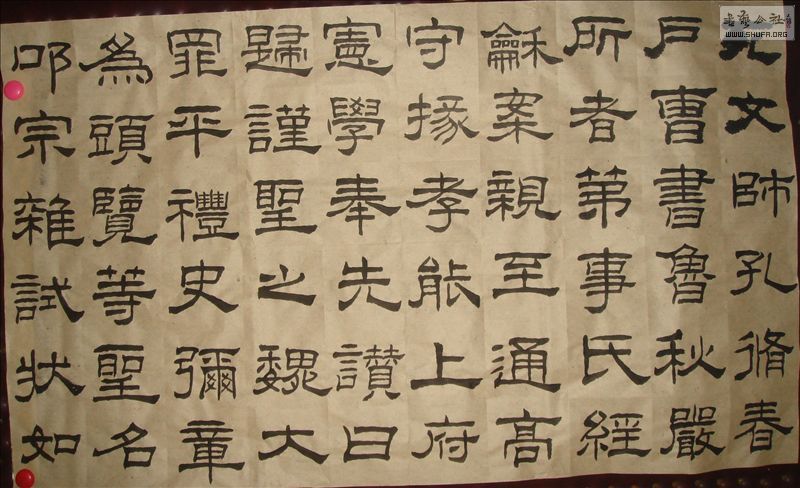 文師孔脩春
戶曹書魯秋嚴
所者第事氏經
龢案親至通高
守掾孝能上府
憲學奉先讃曰
歸謹聖之魏大
罪平禮史彌章
為頭覽等聖名
叩宗雜試狀如
書藝公社
WWW.SHUFA.ORG